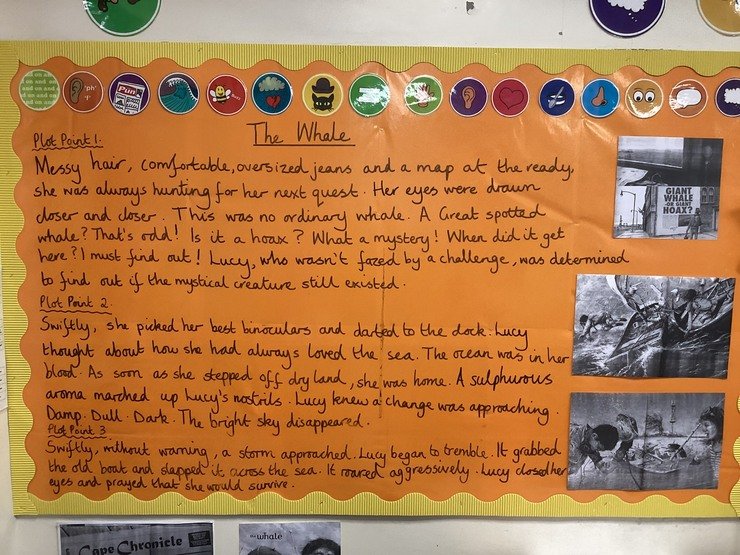 and on and on
'ph'
'f'
Pun
The Whale
Plot Point 1:
Messy hair, comfortable, oversized jeans and a map at the ready,
she was always hunting for her next quest. Her eyes were drawn
closer and closer. This was no ordinary whale. A Great spotted
whale? That's odd! Is it a hoax? What a mystery! When did it get
here? I must find out! Lucy, who wasn't fazed by a challenge, was determined
to find out if the mystical creature still existed.
GIANT
WHALE
OR GIANT
HOAX?
Plot Point 2
Swiftly, she picked her best binoculars and darted to the dock. Lucy
thought about how she had always loved the sea. The ocean was in her
blood. As soon as she stepped off dry land, she was home. A sulphurous
aroma marched up Lucy's nostrils. Lucy knew a change was approaching.
Damp. Dull. Dark. The bright sky disappeared.
Plot Point 3
Swiftly, without warning, a storm approached. Lucy began to tremble. It grabbed
the old boat and slapped it across the sea. It roared aggressively. Lucy closed her
eyes and prayed that she would survive.
Cape Chronicle
the whale